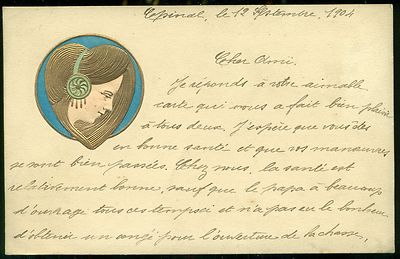 Epinal, le 12 Septembre, 1904
Cher Ami.
Je réponds à votre aimable
carte qui nous a fait bien plaisir
à tous deux. J'espère que vous êtes
en bonne santé et que vos manœuvres
se sont bien passées. Chez nous, la santé est
relativement bonne, sauf que le papa a beaucoup
d'ouvrage tous ces temps ci et n'a pas eu le bonheur
d'obtenir un congé pour l'ouverture de la chasse,